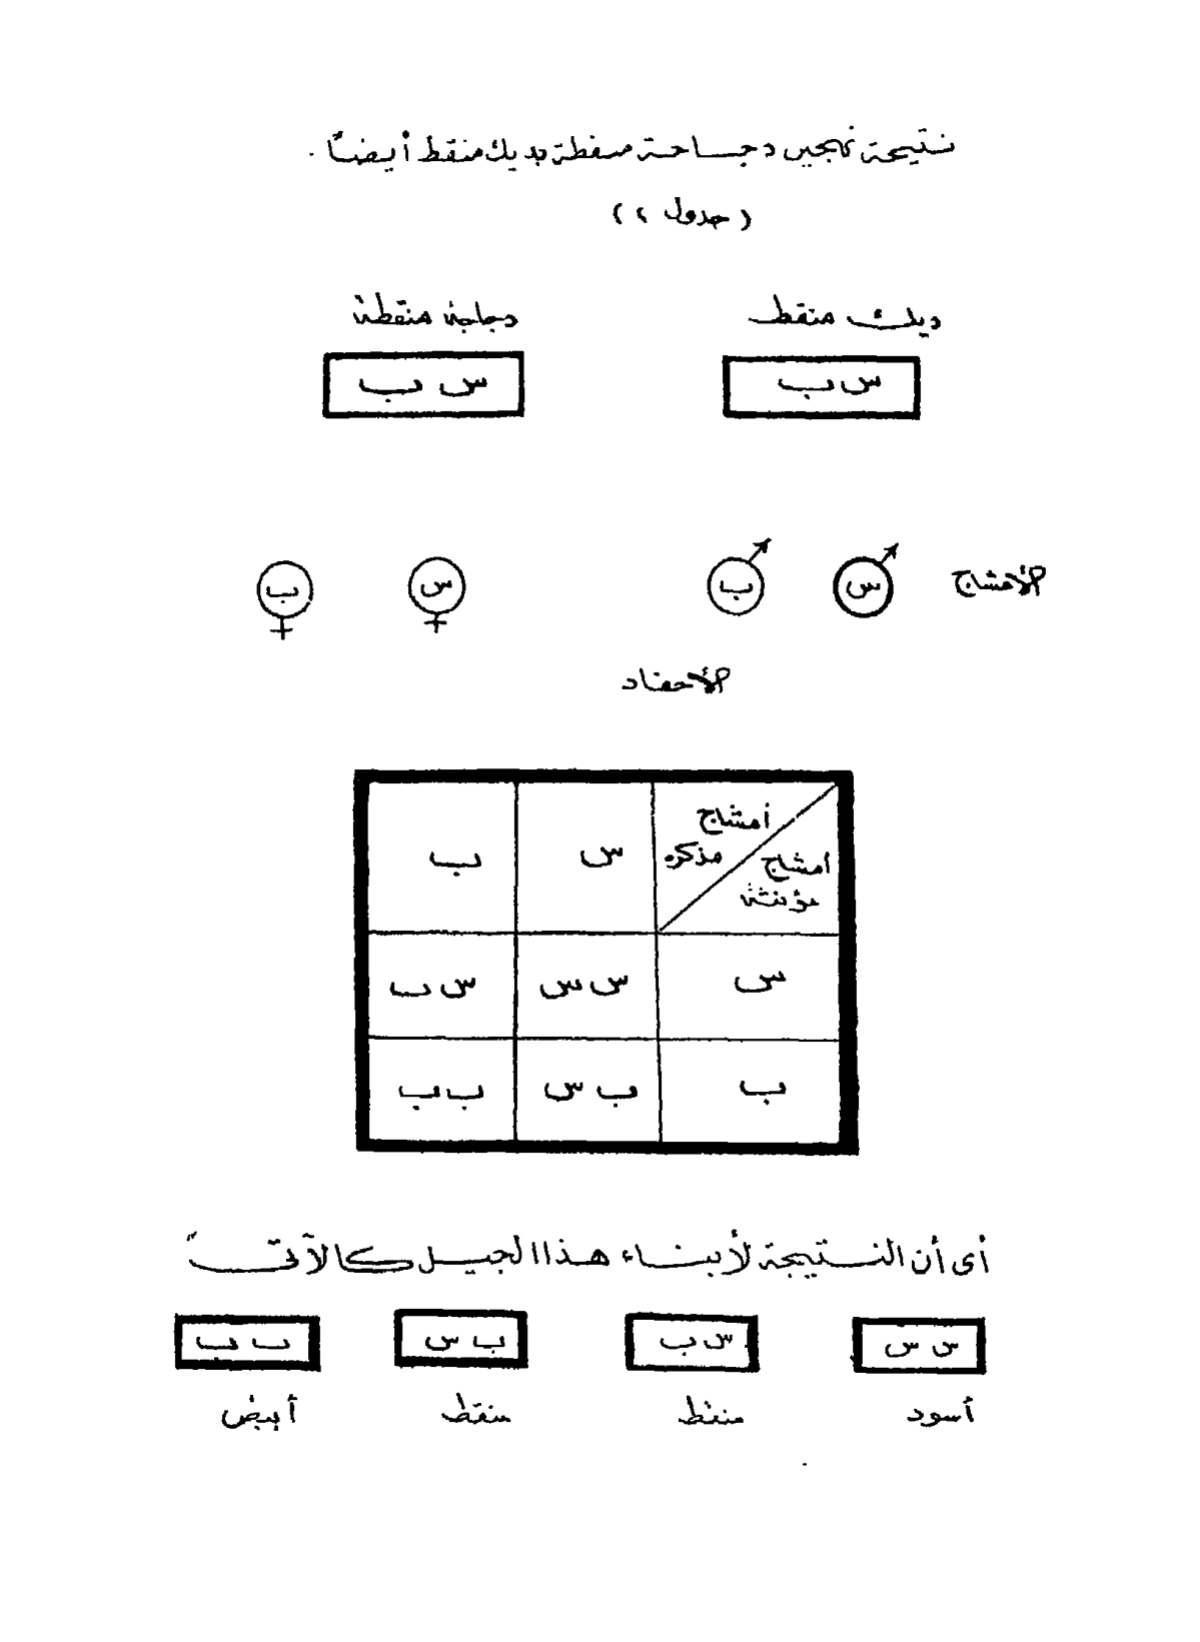 نتيجة تهجين دجاجة منقطة بديك منقط أيضاً .
( جدول ٢ )
ديك منقط دجاجة منقطة
س ب س ب
الأمشاج س ب س ب
الأحفاد
أمشاج مذكره أمشاج مؤنثة س ب
س س س س ب
ب ب س ب ب
أى أن النتيجة لأبناء هذا الجيل كالآتى "
س س س ب ب س ب ب
أسود منقط منقط أبيض